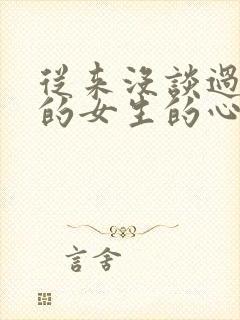 從来沒談過
的女生的心
言舍